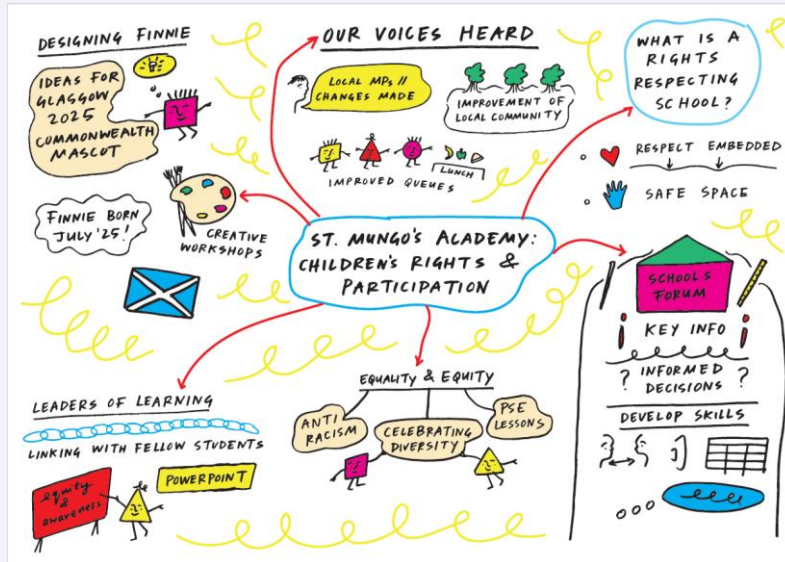 DESIGNING FINNIE
IDEAS FOR
GLASGOW
2025
COMMONWEALTH
MASCOT
FINNIE BORN
JULY '25!
CREATIVE
WORKSHOPS
OUR VOICES HEARD
LOCAL MPs //
CHANGES MADE
IMPROVEMENT OF
LOCAL COMMUNITY
LUNCH
IMPROVED QUEUES
WHAT IS A
RIGHTS
RESPECTING
SCHOOL?
RESPECT EMBEDDED
SAFE SPACE
ST. MUNGO'S ACADEMY:
CHILDREN'S RIGHTS &
PARTICIPATION
SCHOOLS
FORUM
KEY INFO
? INFORMED ?
DECISIONS
DEVELOP SKILLS
LEADERS OF LEARNING
LINKING WITH FELLOW STUDENTS
POWERPOINT
equity
&
awareness
EQUALITY & EQUITY
ANTI
RACISM
CELEBRATING
DIVERSITY
PSE
LESSONS